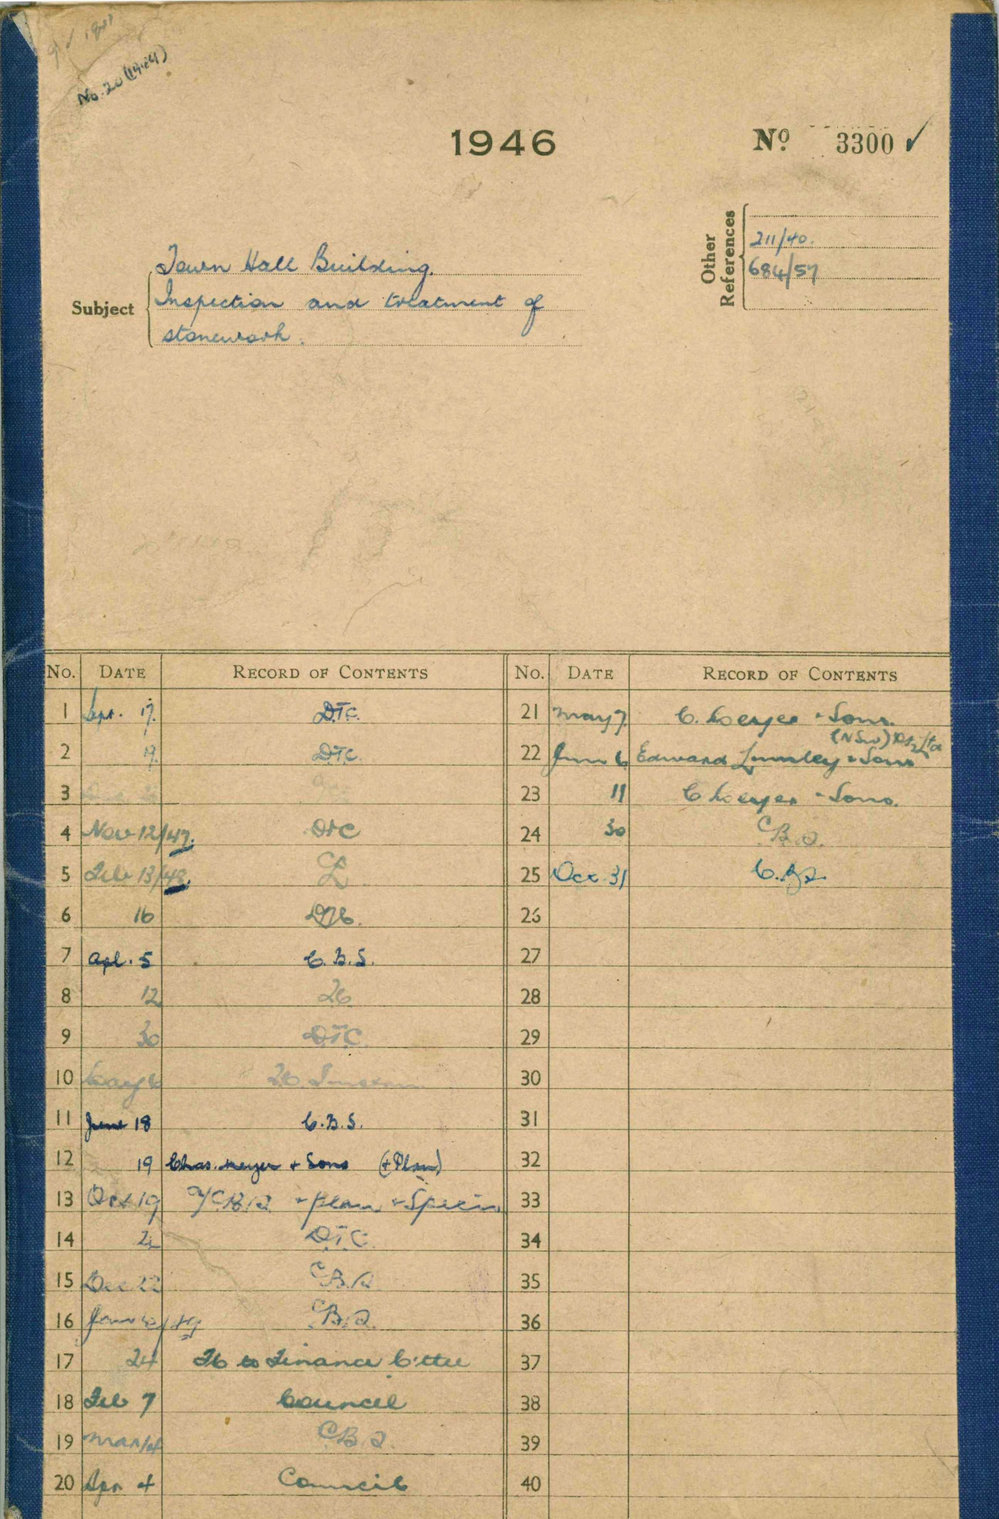 No. 20 (1944)
1946
Nº 3300 ✓
Other References
211/40.
684/57
Subject
Town Hall Building.
Inspection and treatment of
stonework.
No. DATE RECORD OF CONTENTS
1 Sept. 17. D.T.C.
2 9. D.T.C.
3
4 Nov 12/47. DTC
5 Feb 13/48.
6 16
7 Apl. 5 C.B.S.
8 12
9 30 D.T.C.
10
11 June 18 C.B.S.
12 19 Chas. Meyer + Sons (+ Plan)
13 Oct 19 + plan + Specin
14 D.T.C.
15 Dec 22 C.B.S.
16 Jan /49 C.B.S.
17 24 to Finance C'ttee
18 Feb 7 Council
19 Mar C.B.S.
20 Apr 4 Council
No. DATE RECORD OF CONTENTS
21 May 7. C. Meyer + Sons.
22 June 6 Edward Lumley + Sons (NSW) Pty Ltd
23 11 C Meyer + Sons.
24 30 C.B.S.
25 Oct. 31 C.B.S.
26
27
28
29
30
31
32
33
34
35
36
37
38
39
40